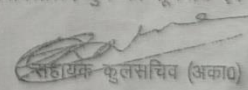 सहायक कुलसचिव (अका0)